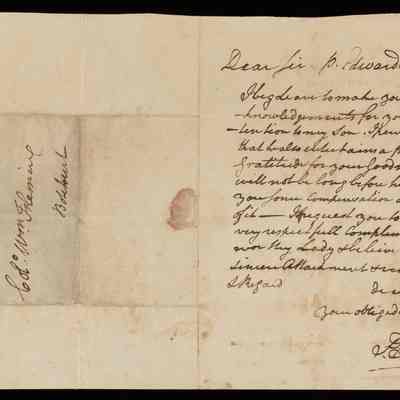 Dear Sir P. Edward
I beg Leave to make you
-knowledgements for yo
-tention to my Son. I
that he also entertains a
Gratitude for your Goodn
will not be long before he
you some Compensation
of it — I Request you to
very respectfull Complem
wor thy Lady & believe
sincere Attachment &
& Regard
your obliged
Colo Wm Fleming
Bellmont